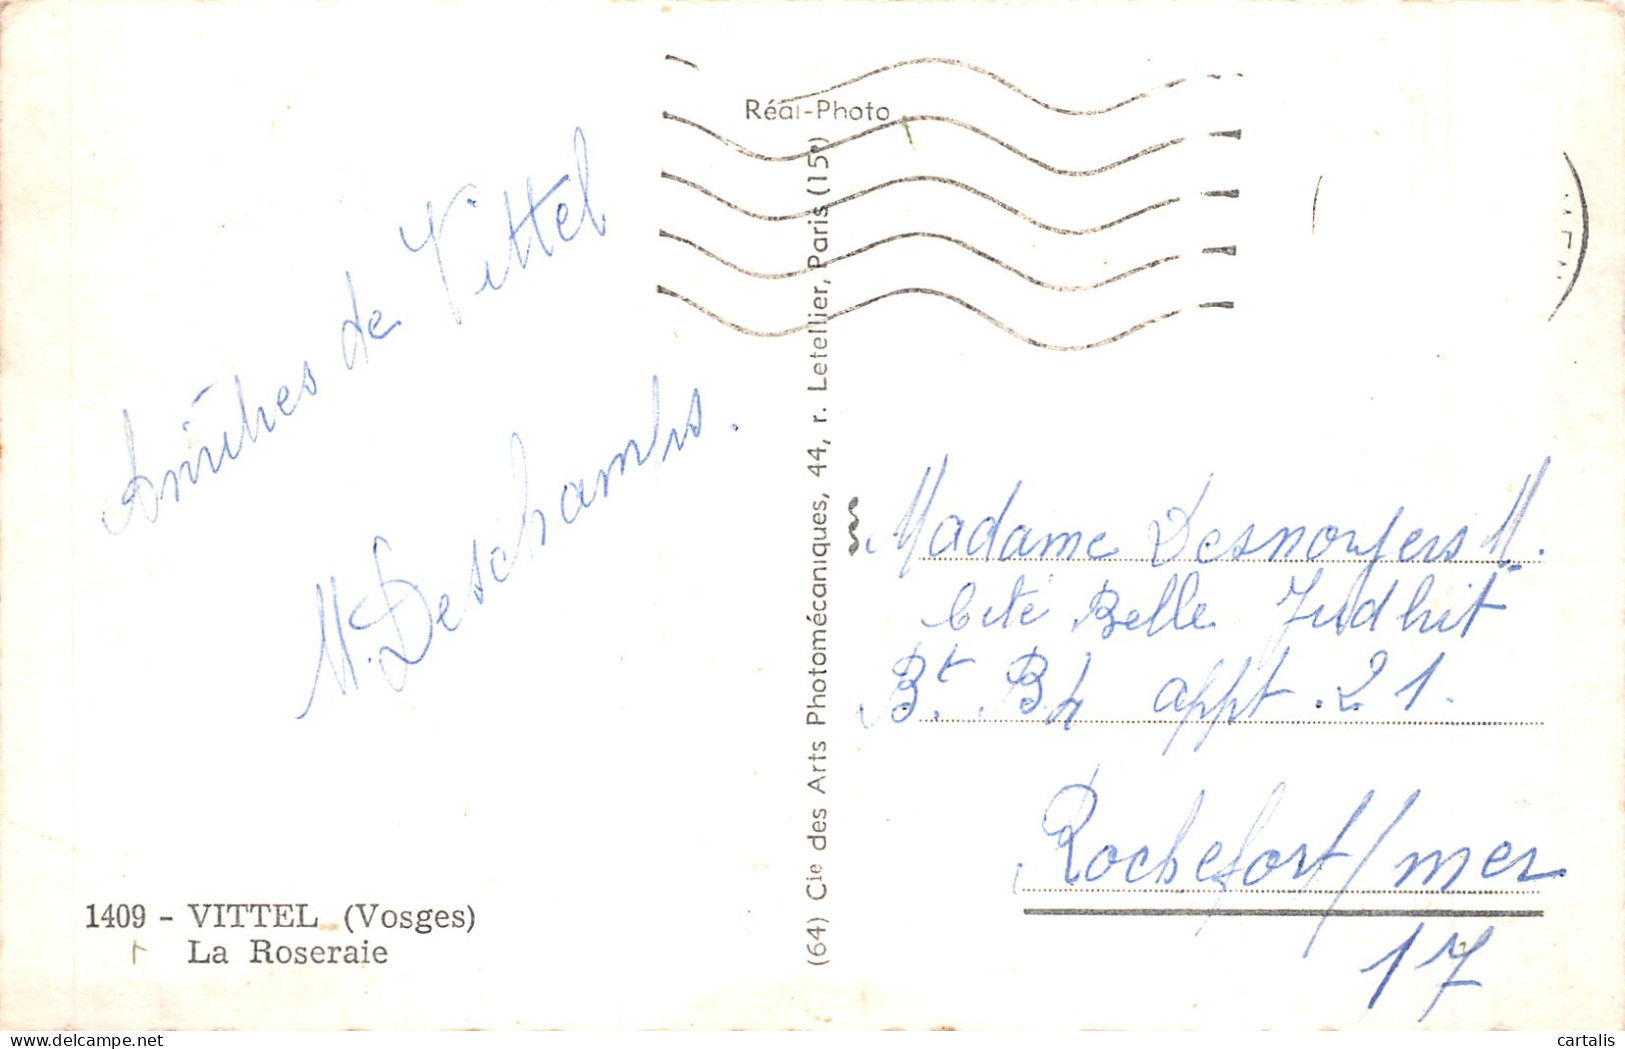 Réal-Photo
Amitiés de Vittel
M. Deschamps.
(64) Cie des Arts Photomécaniques, 44, r. Letellier, Paris (15e)
Madame Desnoyers M.
Cité Belle Judhit
Bt. Bh appt. 21.
Rochefort/mer
17
1409 - VITTEL (Vosges)
La Roseraie
cartalis